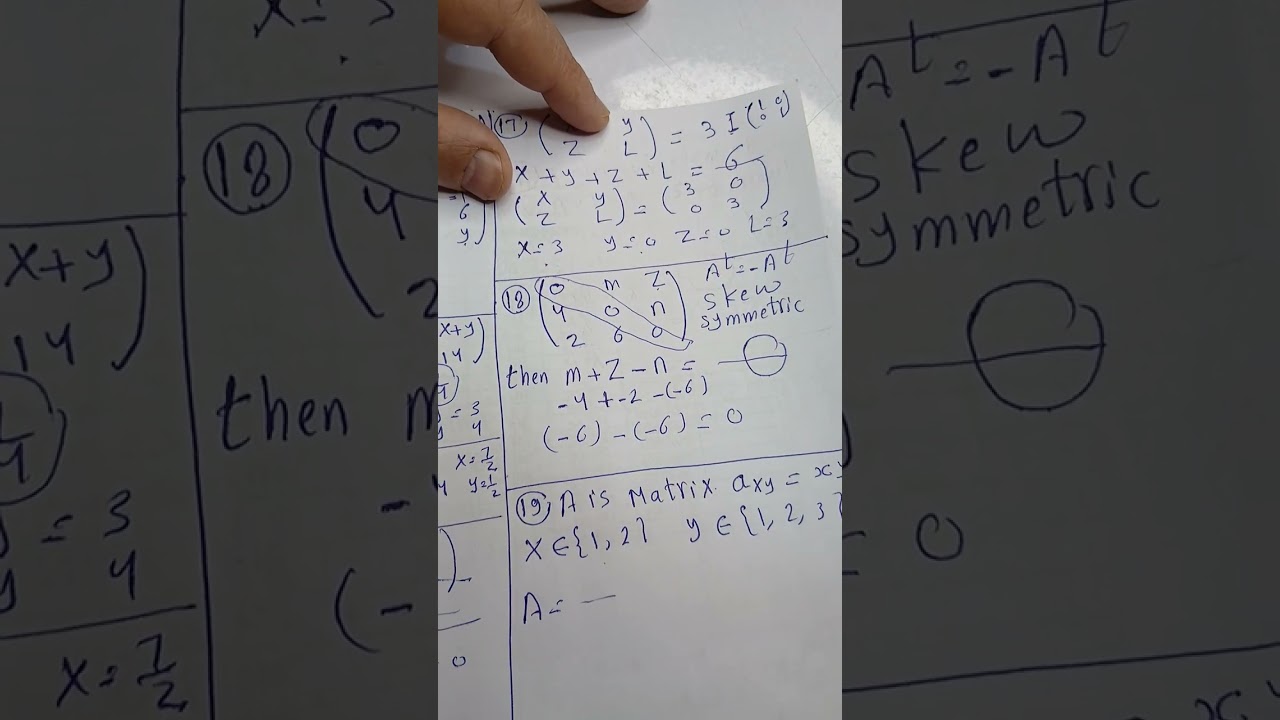 17 ( y
Z L ) = 3 I ( 1 0
0 1 )
x + y + z + L = 6
( x y
z L ) = ( 3 0
0 3 )
x = 3 y = 0 z = 0 L = 3
18 ( 0 m Z
4 0 n
2 6 0 )
A^t = -A^t
skew
symmetric
then m + Z - n =
-4 + -2 - (-6)
(-6) - (-6) = 0
19 A is Matrix a_xy =
x ∈ {1, 2} y ∈ {1, 2, 3
A =
x+y)
14)
= 3
4
x = 7/2
y = 1/2
0